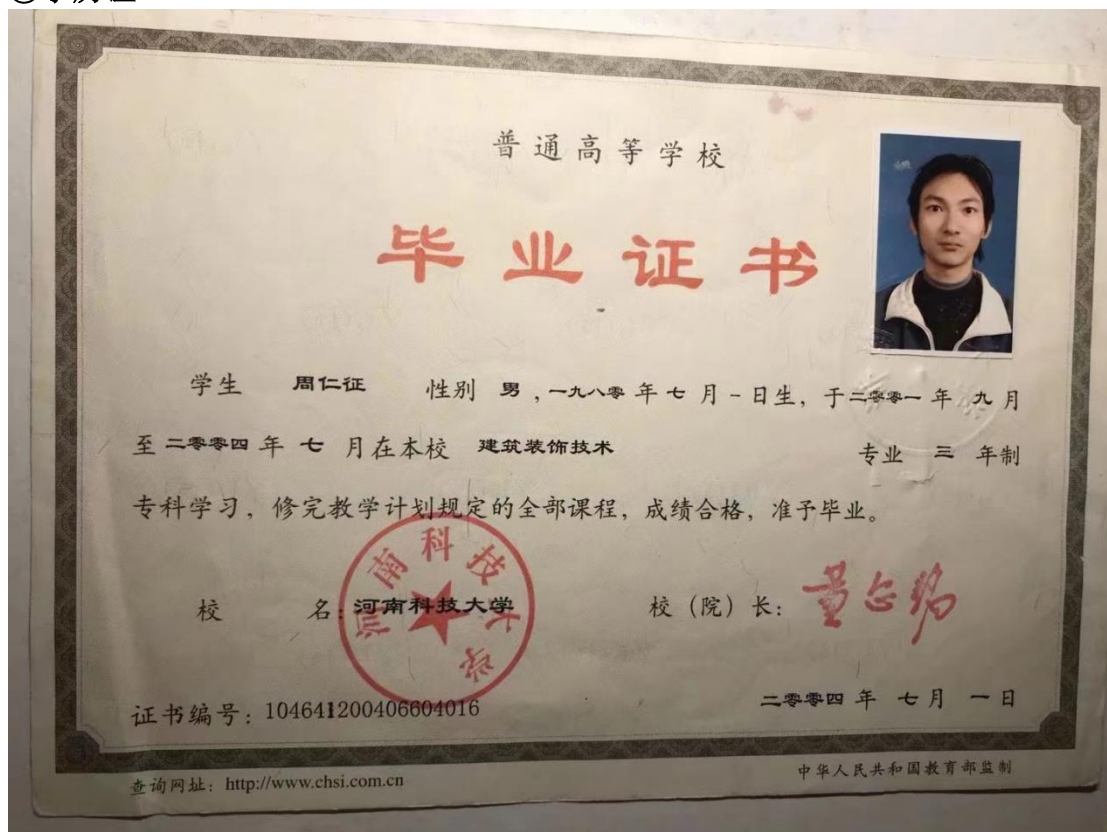 普通高等学校
毕业证书
学生 周仁征 性别 男，一九八零年七月一日生，于二零零一年九月
至二零零四年七月在本校 建筑装饰技术 专业 三 年制
专科学习，修完教学计划规定的全部课程，成绩合格，准予毕业。
校 名：河南科技大学 校（院）长：
河南科技大学
二零零四年七月一日
证书编号：104641200406604016
查询网址：http://www.chsi.com.cn
中华人民共和国教育部监制